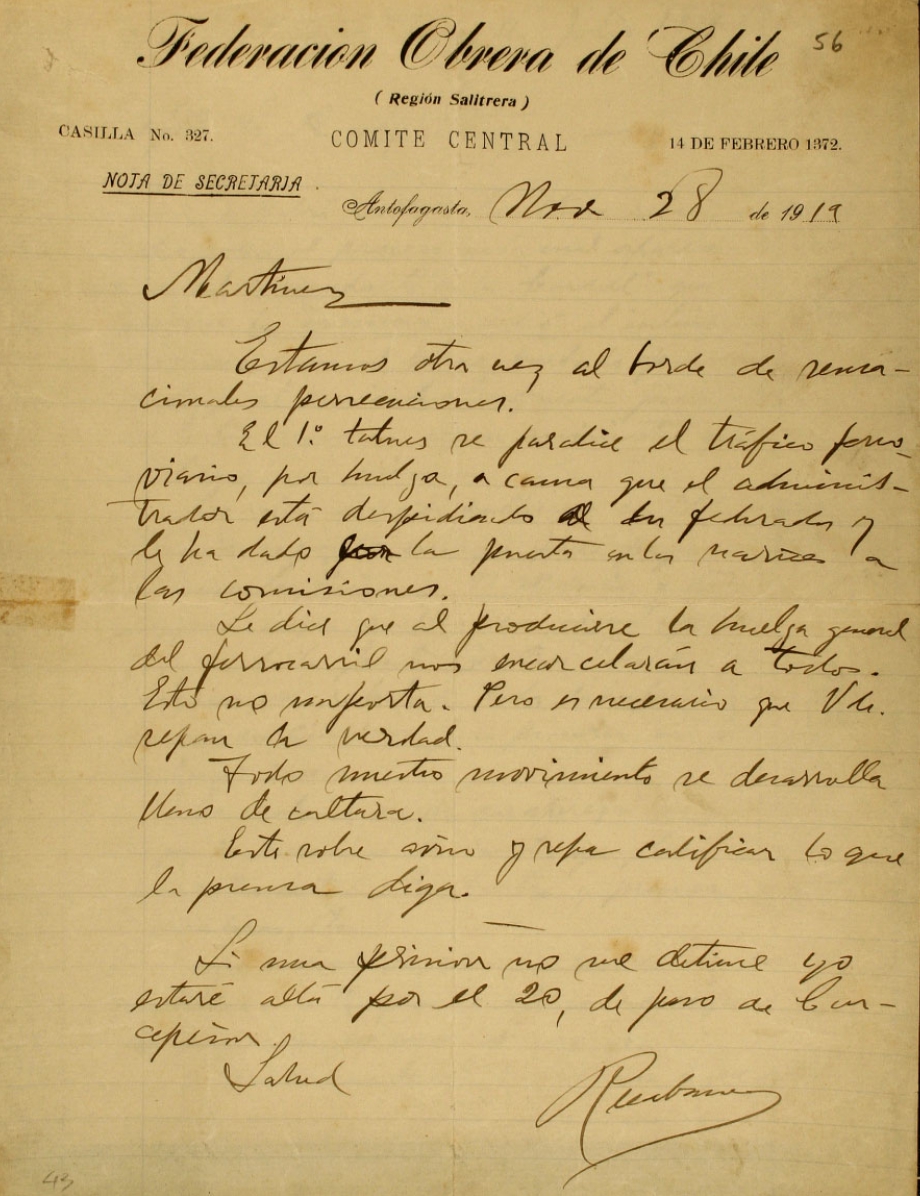 56
Federacion Obrera de Chile
( Región Salitrera )
CASILLA No. 327. COMITE CENTRAL 14 DE FEBRERO 1372.
NOTA DE SECRETARIA
Antofagasta, Nov 28 de 1919
Martinez
Estamos otra vez al borde de sensa-
cionales persecuciones.
El 1º. talves se paralice el tráfico ferro-
viario, por huelga, a causa que el adminis-
trador está despidiendo a los federados y
le ha dado la puerta en las narices a
las comisiones.
Se dice que al producirse la huelga general
del ferrocarril nos encarcelarán a todos.
Esto no importa. Pero es necesario que Vds.
sepan la verdad.
Todo nuestro movimiento se desarrolla
lleno de cultura.
Esté sobre aviso y sepa calificar lo que
la prensa diga.
Si una prisión no me detiene yo
estaré allá por el 20, de paso a Con-
cepción.
Salud
Recabarren
43